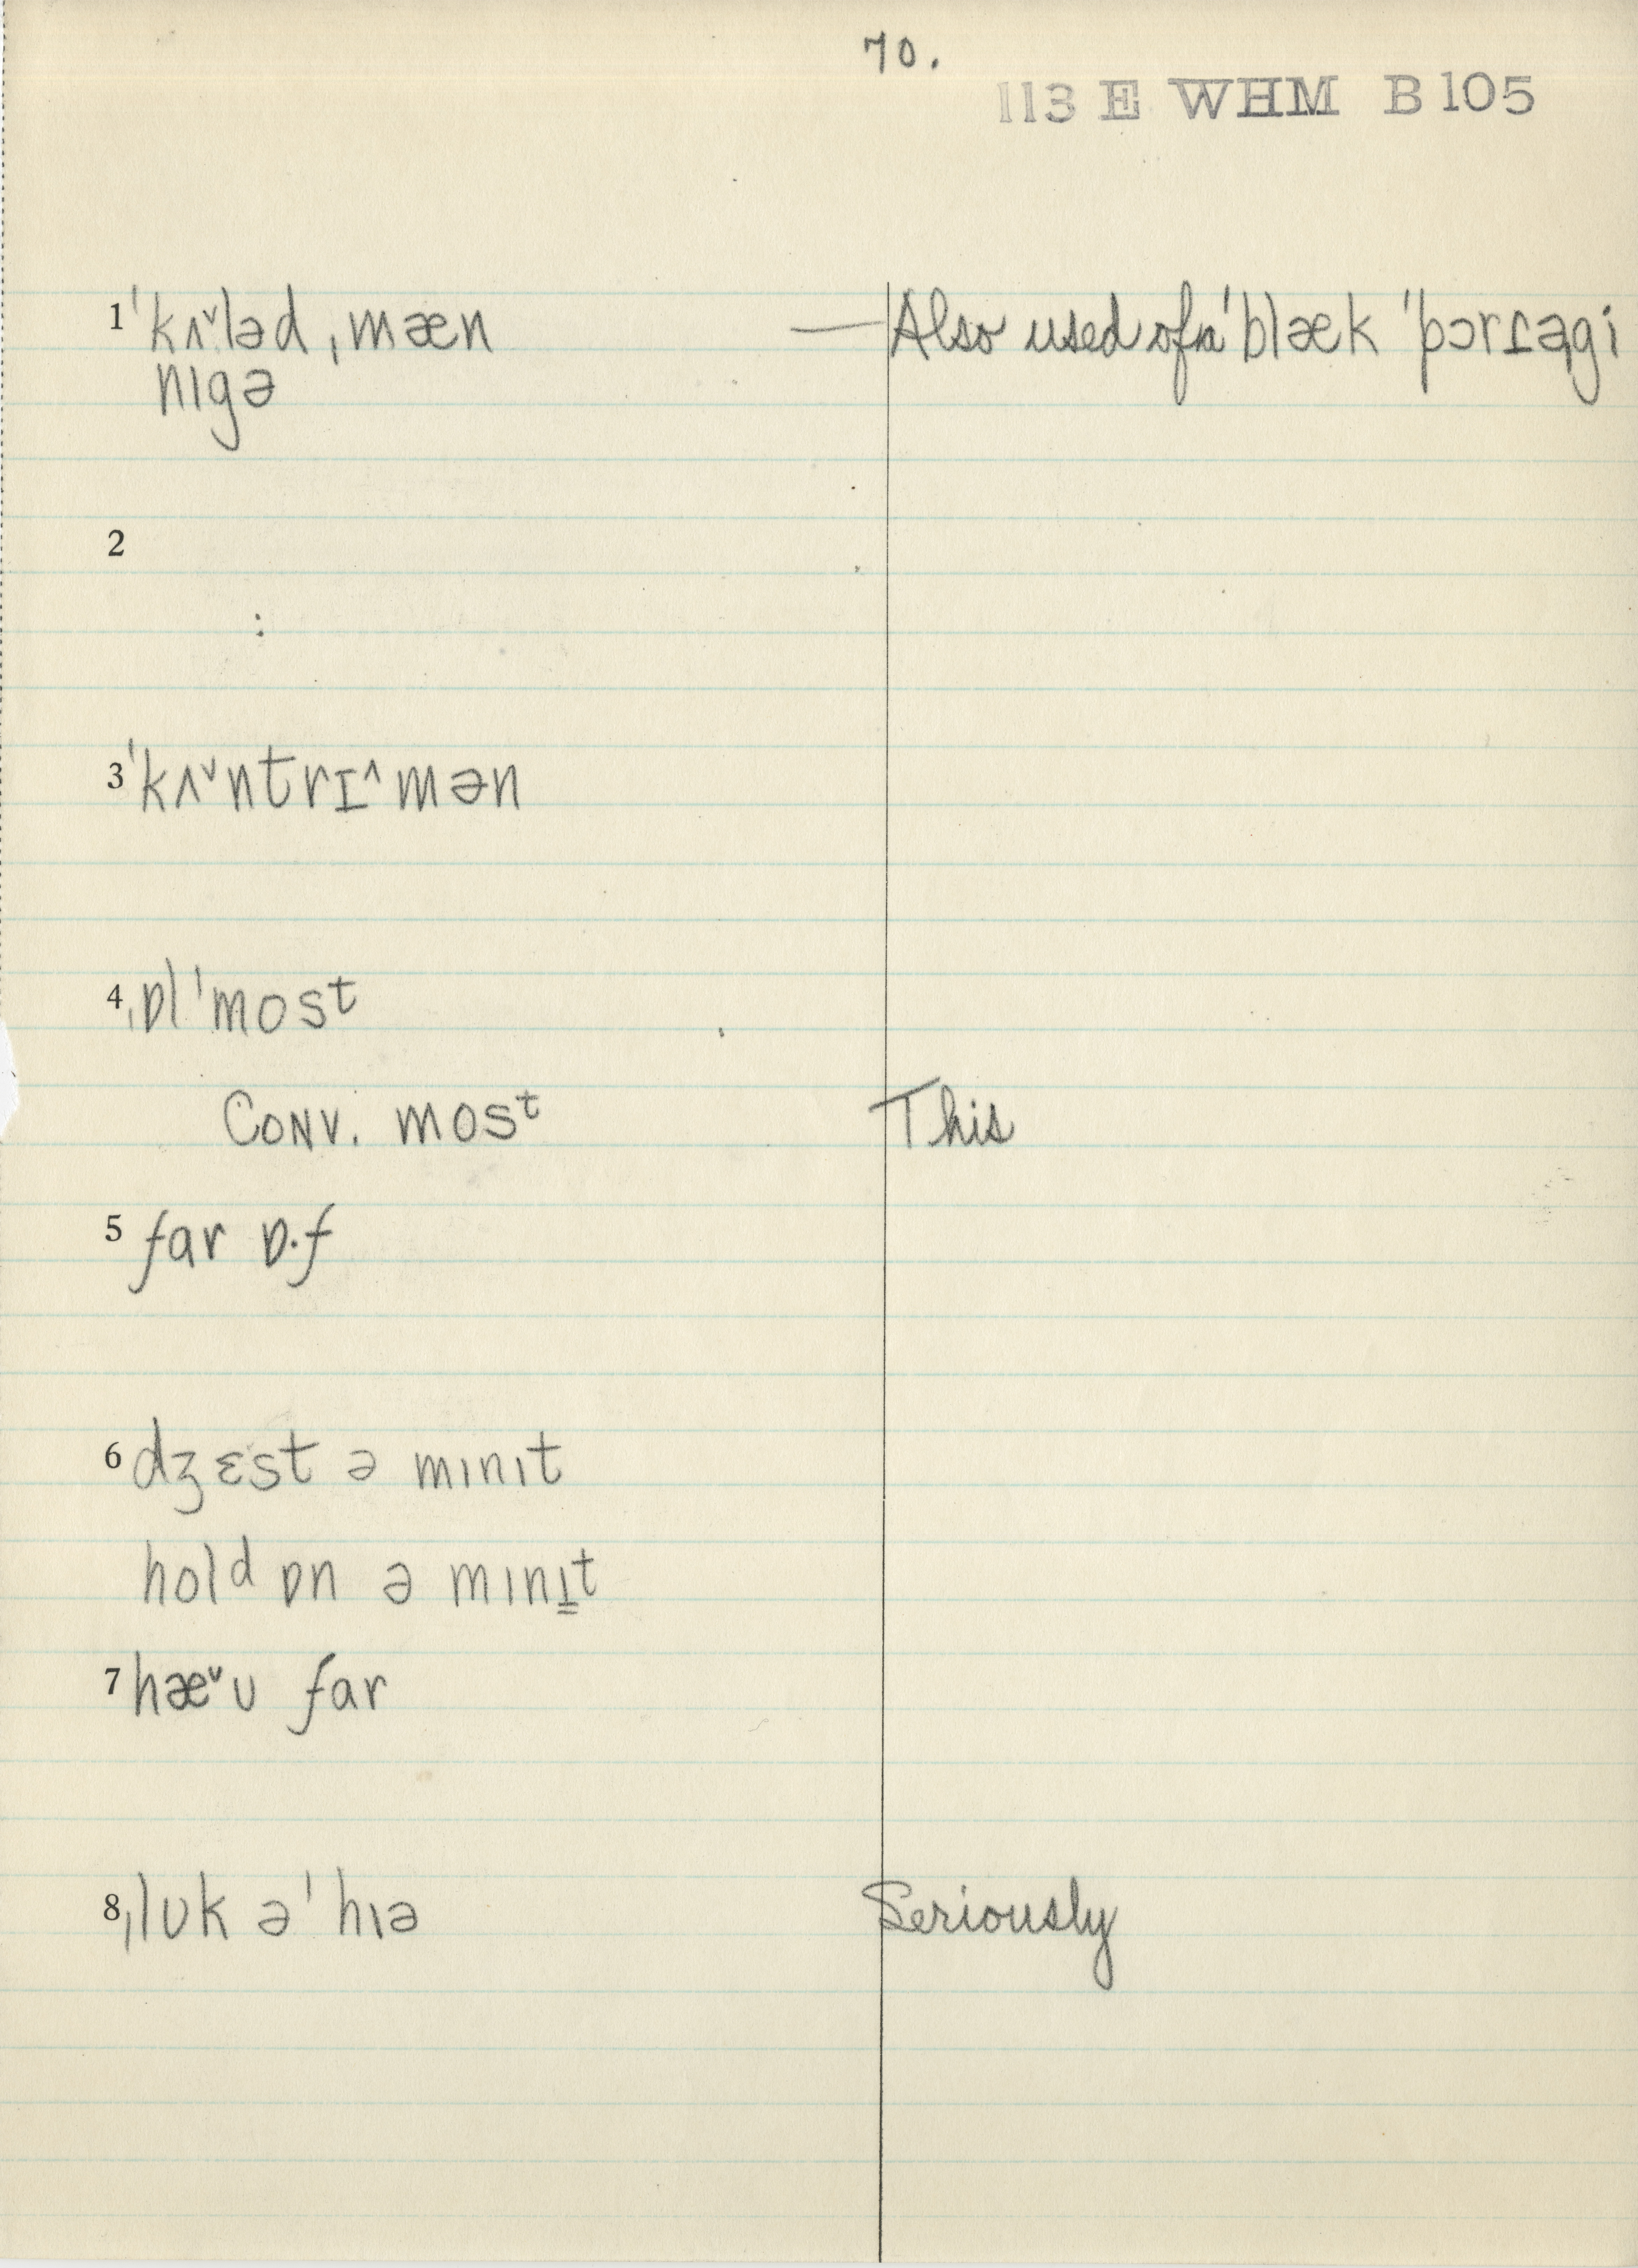 70.
113 E WHM B 105
1 ˈkʌ˅ləd ˌmæn — Also used of a ˈblæk ˈpɔrɪəgi
nɪgə
2
:
3 ˈkʌ˅ntrɪ^mən
4 ˌɒlˈmost
CONV. mosᵗ This
5 far ɒ·f
6 dʒɛst ə mɪnɪt
holᵈ ɒn ə mɪnɪt
7 hæ˅ʊ far
8 ˌlʊk əˈhɪə Seriously